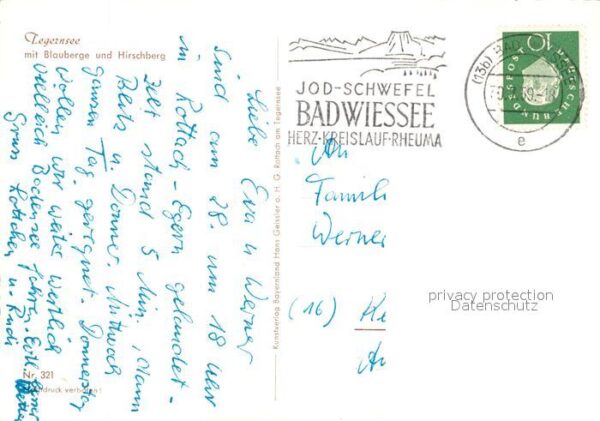 Tegernsee
mit Blauberge und Hirschberg
Liebe Eva u Werner
Sind am 28. um 18 Uhr
in Rottach-Egern gelandet -
Zelt stand 5 Min, dann
Blitz u. Donner. Mittwoch
ganzen Tag geregnet. Donnerstag
wollen wir weiter westlich
vielleich Bodensee fahren. Evtl. besser
Wetter
Gruss Lottchen u.
Nr. 321
druck verboten!
Kunstverlag Bayernland Hans Geissler o. H. G. Rottach am Tegernsee
JOD-SCHWEFEL
BADWIESSEE
HERZ·KREISLAUF·RHEUMA
(13b) BAD
e
10
DEUTSCHE
BUNDESPOST
An
Famili
Werner
(16)
privacy protection
Datenschutz